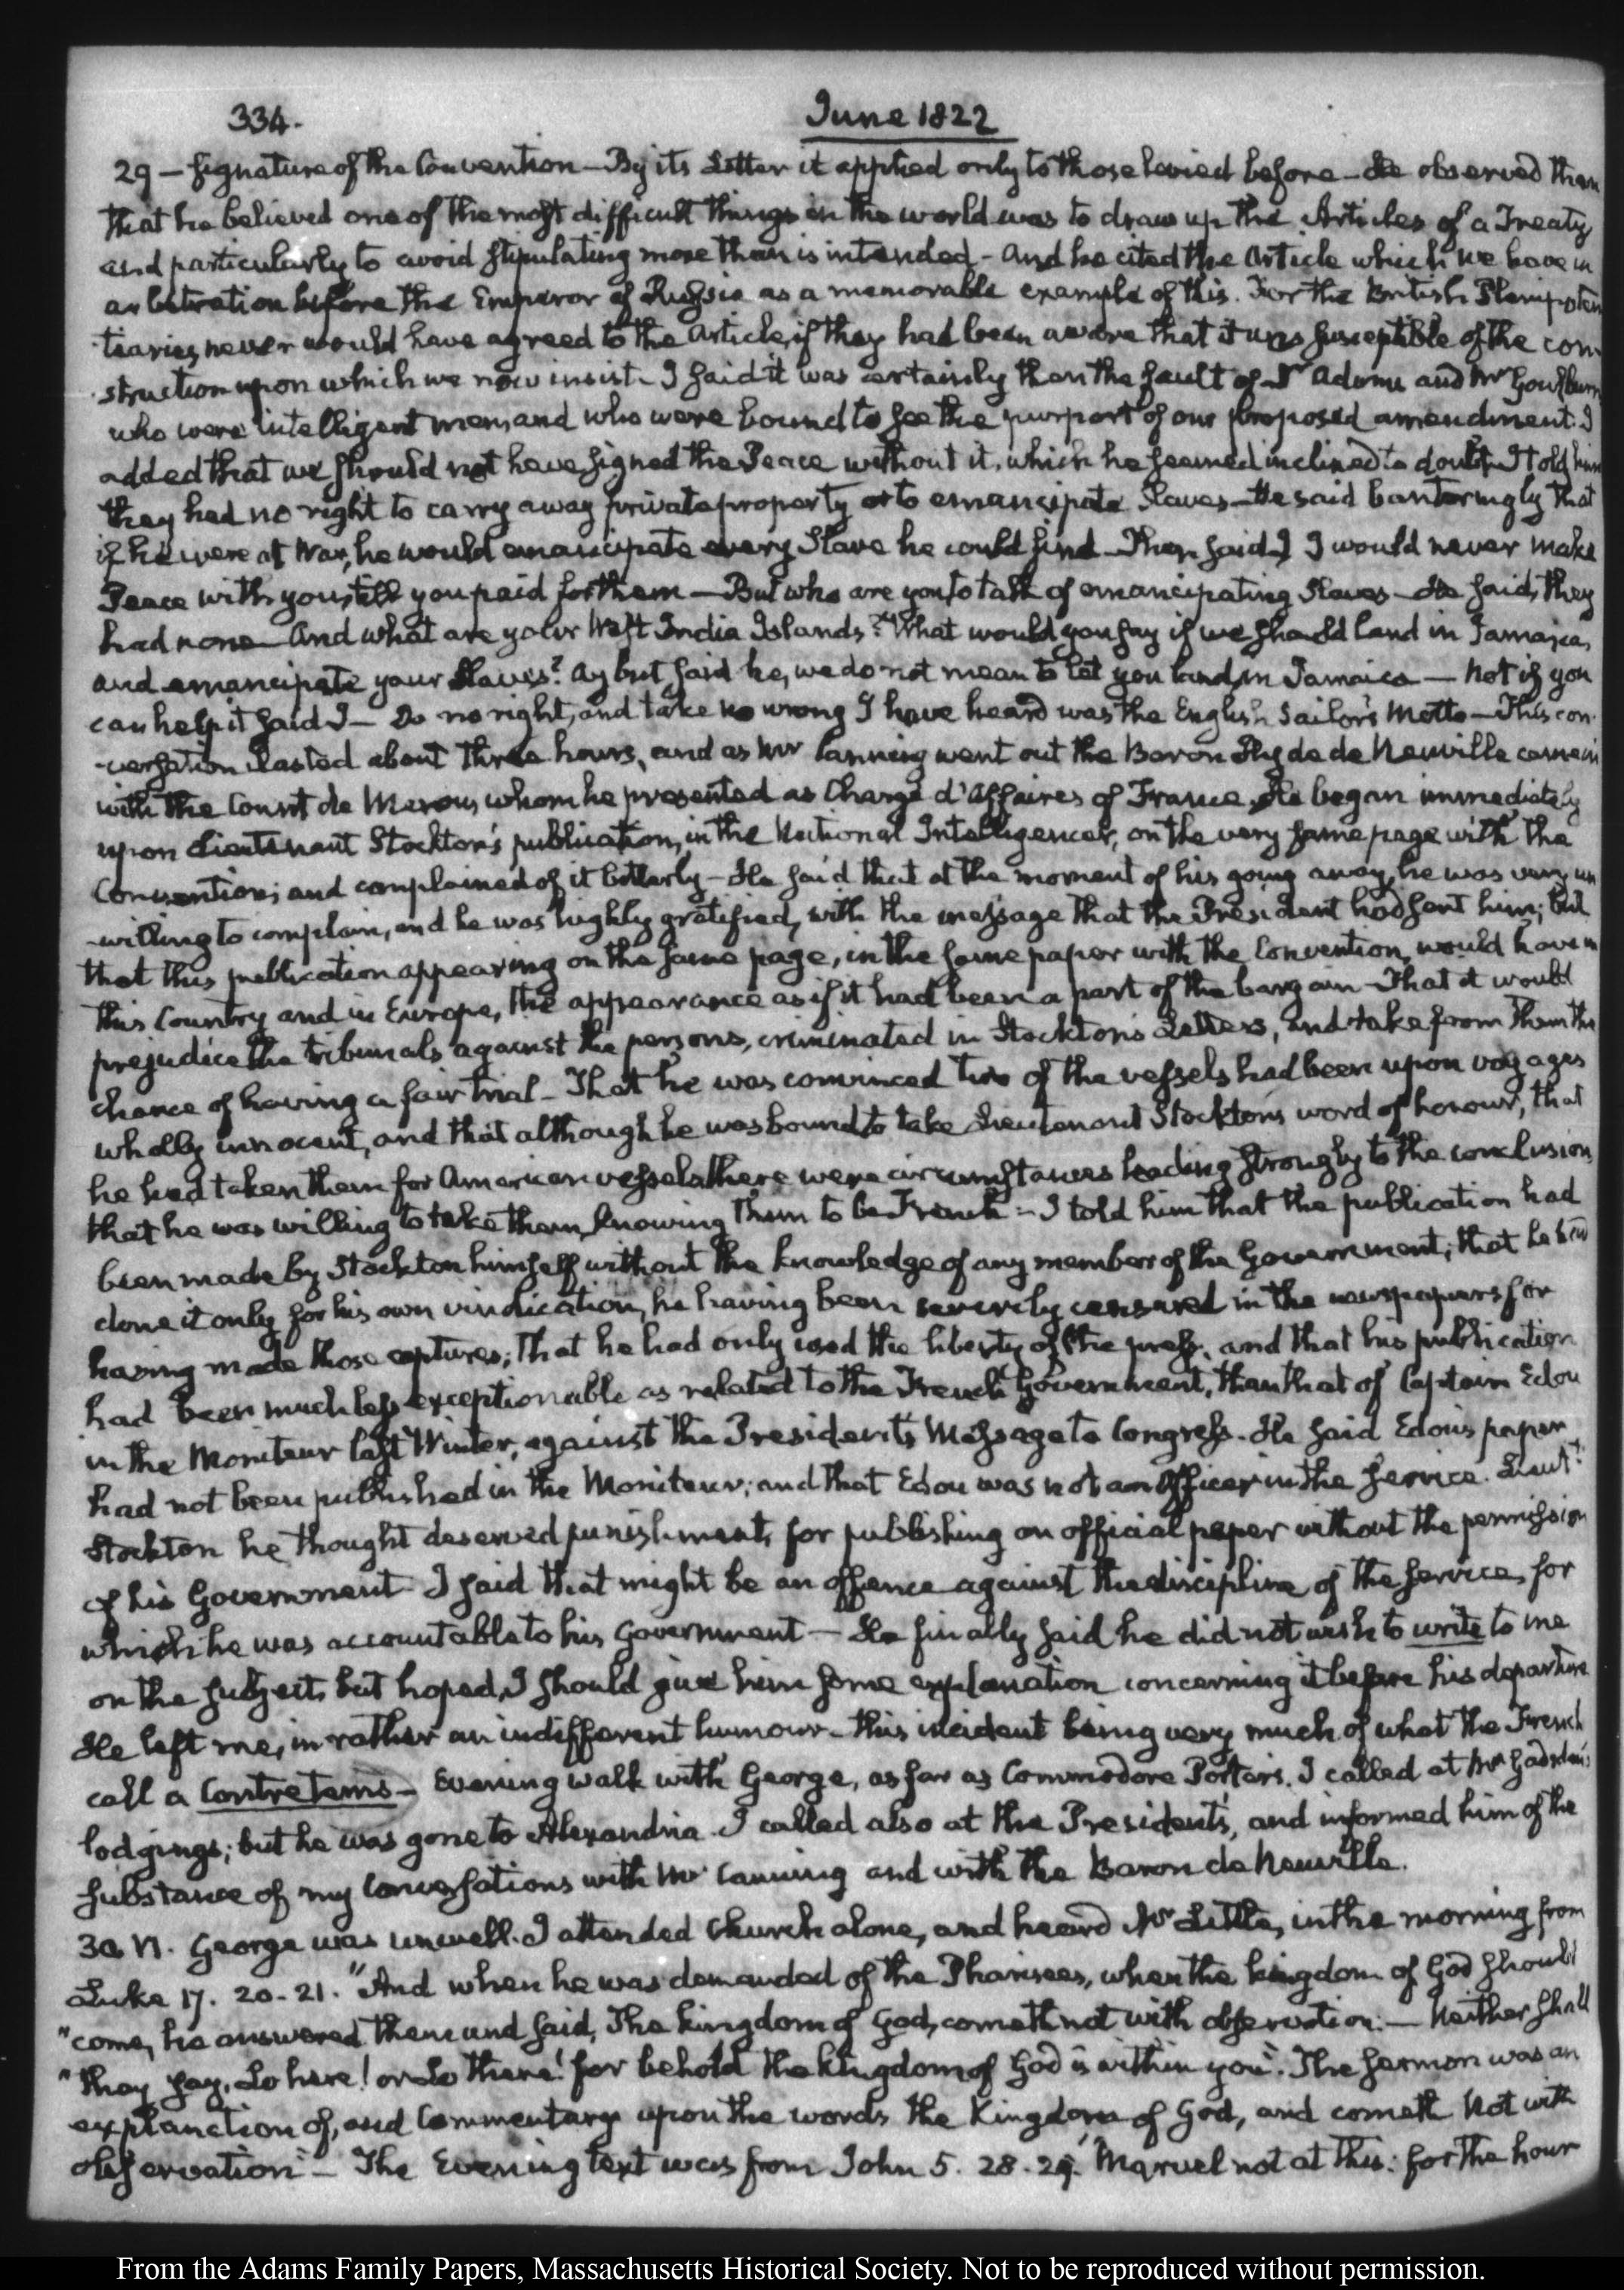 334.
June 1822
29 — signature of the Convention — By its Letter it applied only to those levied before — He observed then
that he believed one of the most difficult things in the world was to draw up the Articles of a Treaty
and particularly to avoid stipulating more than is intended — And he cited the Article which we have in
arbitration before the Emperor of Russia as a memorable example of this. For the British Plenipoten
tiaries never would have agreed to the Article, if they had been aware that it was susceptible of the con-
struction upon which we now insist — I said it was certainly then the fault of Dr Adams and Mr Goulburn
who were intelligent men, and who were bound to see the purport of our proposed amendment. I
added that we should not have signed the Peace without it, which he seemed inclined to doubt — I told him
they had no right to carry away private property or to emancipate Slaves — He said banteringly that
if he were at War, he would emancipate every Slave he could find — Then said I I would never make
Peace with you, till you paid for them — But who are you to talk of emancipating Slaves — He said, they
had none — And what are your West India Islands? What would you say if we should land in Jamaica,
and emancipate your Slaves? Ay but said he, we do not mean to let you land in Jamaica — Not if you
can help it said I — Do no right, and take no wrong I have heard was the English Sailor's Motto — This con-
-versation lasted about three hours, and as Mr Canning went out the Baron Hyde de Neuville came in
with the Count de Menou, whom he presented as Chargé d'Affaires of France. He began immediately
upon Lieutenant Stockton's publication, in the National Intelligencer, on the very same page with the
Convention; and complained of it bitterly — He said that at the moment of his going away, he was very un
-willing to complain, and he was highly gratified, with the message that the President had sent him; but
that this publication appearing on the same page, in the same paper with the Convention, would have in
this Country and in Europe, the appearance as if it had been a part of the bargain — That it would
prejudice the tribunals against the persons, criminated in Stockton's Letters, and take from them the
chance of having a fair trial — That he was convinced two of the vessels had been upon voyages
wholly innocent, and that although he was bound to take Lieutenant Stockton's word of honour, that
he had taken them for American vessels there were circumstances leading strongly to the conclusion
that he was willing to take them, knowing them to be French — I told him that the publication had
been made by Stockton himself without the knowledge of any member of the Government; that he had
done it only for his own vindication, he having been severely censured in the newspapers for
having made those captures; That he had only used the liberty of the press, and that his publication
had been much less exceptionable as related to the French Government, than that of Captain Edou
in the Moniteur last Winter, against the President's Message to Congress. He said Edou's paper
had not been published in the Moniteur; and that Edou was not an Officer in the service. Lieutt.
Stockton he thought deserved punishment, for publishing an official paper without the permission
of his Government — I said that might be an offence against the discipline of the service, for
which he was accountable to his Government — He finally said he did not wish to write to me
on the subject, but hoped, I should give him some explanation concerning it before his departure.
He left me, in rather an indifferent humour — this incident being very much of what the French
call a Contretems — Evening walk with George, as far as Commodore Porter's. I called at Mr Gadsden's
lodgings; but he was gone to Alexandria. I called also at the President's, and informed him of the
substance of my conversations with Mr Canning and with the Baron de Neuville.
30. VI. George was unwell. I attended Church alone, and heard Mr Little, in the morning from
Luke 17. 20-21. "And when he was demanded of the Pharisees, when the kingdom of God should
"come, he answered them and said, The kingdom of God, cometh not with observation: — Neither shall
"they say, Lo here! or Lo there! for behold the kingdom of God is within you". The sermon was an
explanation of, and Commentary upon the words the Kingdom of God, and cometh not with
observation — The Evening text was from John 5. 28. 29. "Marvel not at this: for the hour
From the Adams Family Papers, Massachusetts Historical Society. Not to be reproduced without permission.